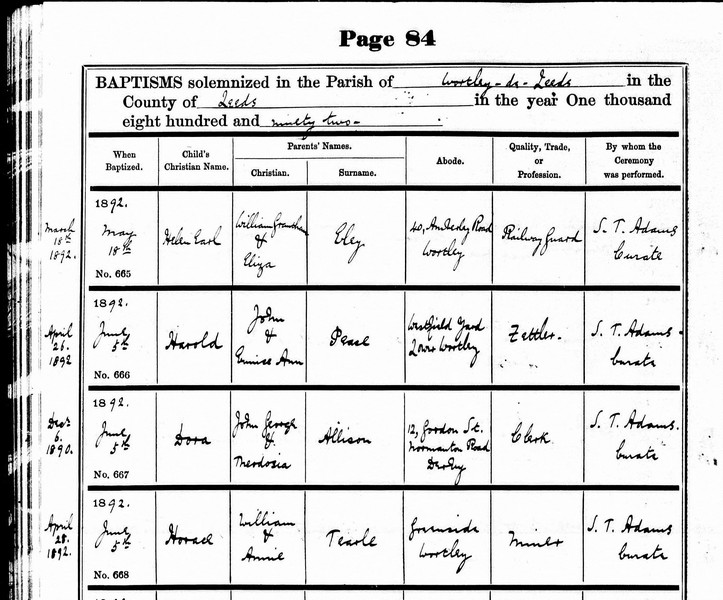 Page 84
BAPTISMS solemnized in the Parish of Wortley-de-Leeds in the
County of Leeds in the year One thousand
eight hundred and ninety two-
When Baptized.
Child's Christian Name.
Parents' Names.
Christian.
Surname.
Abode.
Quality, Trade, or Profession.
By whom the Ceremony was performed.
March 18th 1892.
1892. May 18th No. 665
Helen Earl
William & Eliza
Eley
40, Amberley Road Wortley
Railway Guard
S. T. Adams Curate
April 26. 1892
1892. June 5th No. 666
Harold
John & Eunice Ann
Pease
Westfield Yard Lower Wortley
Fettler.
S. T. Adams. Curate
Decr 6. 1890.
1892. June 5th No. 667
Dora
John George & Theodosia
Allison
12, Gordon St. Normanton Road Derby
Clerk
S. T. Adams. Curate
April 28. 1892.
1892. June 5th No. 668
Horace
William & Annie
Tearle
Greenside Wortley
Miner
S. T. Adams Curate